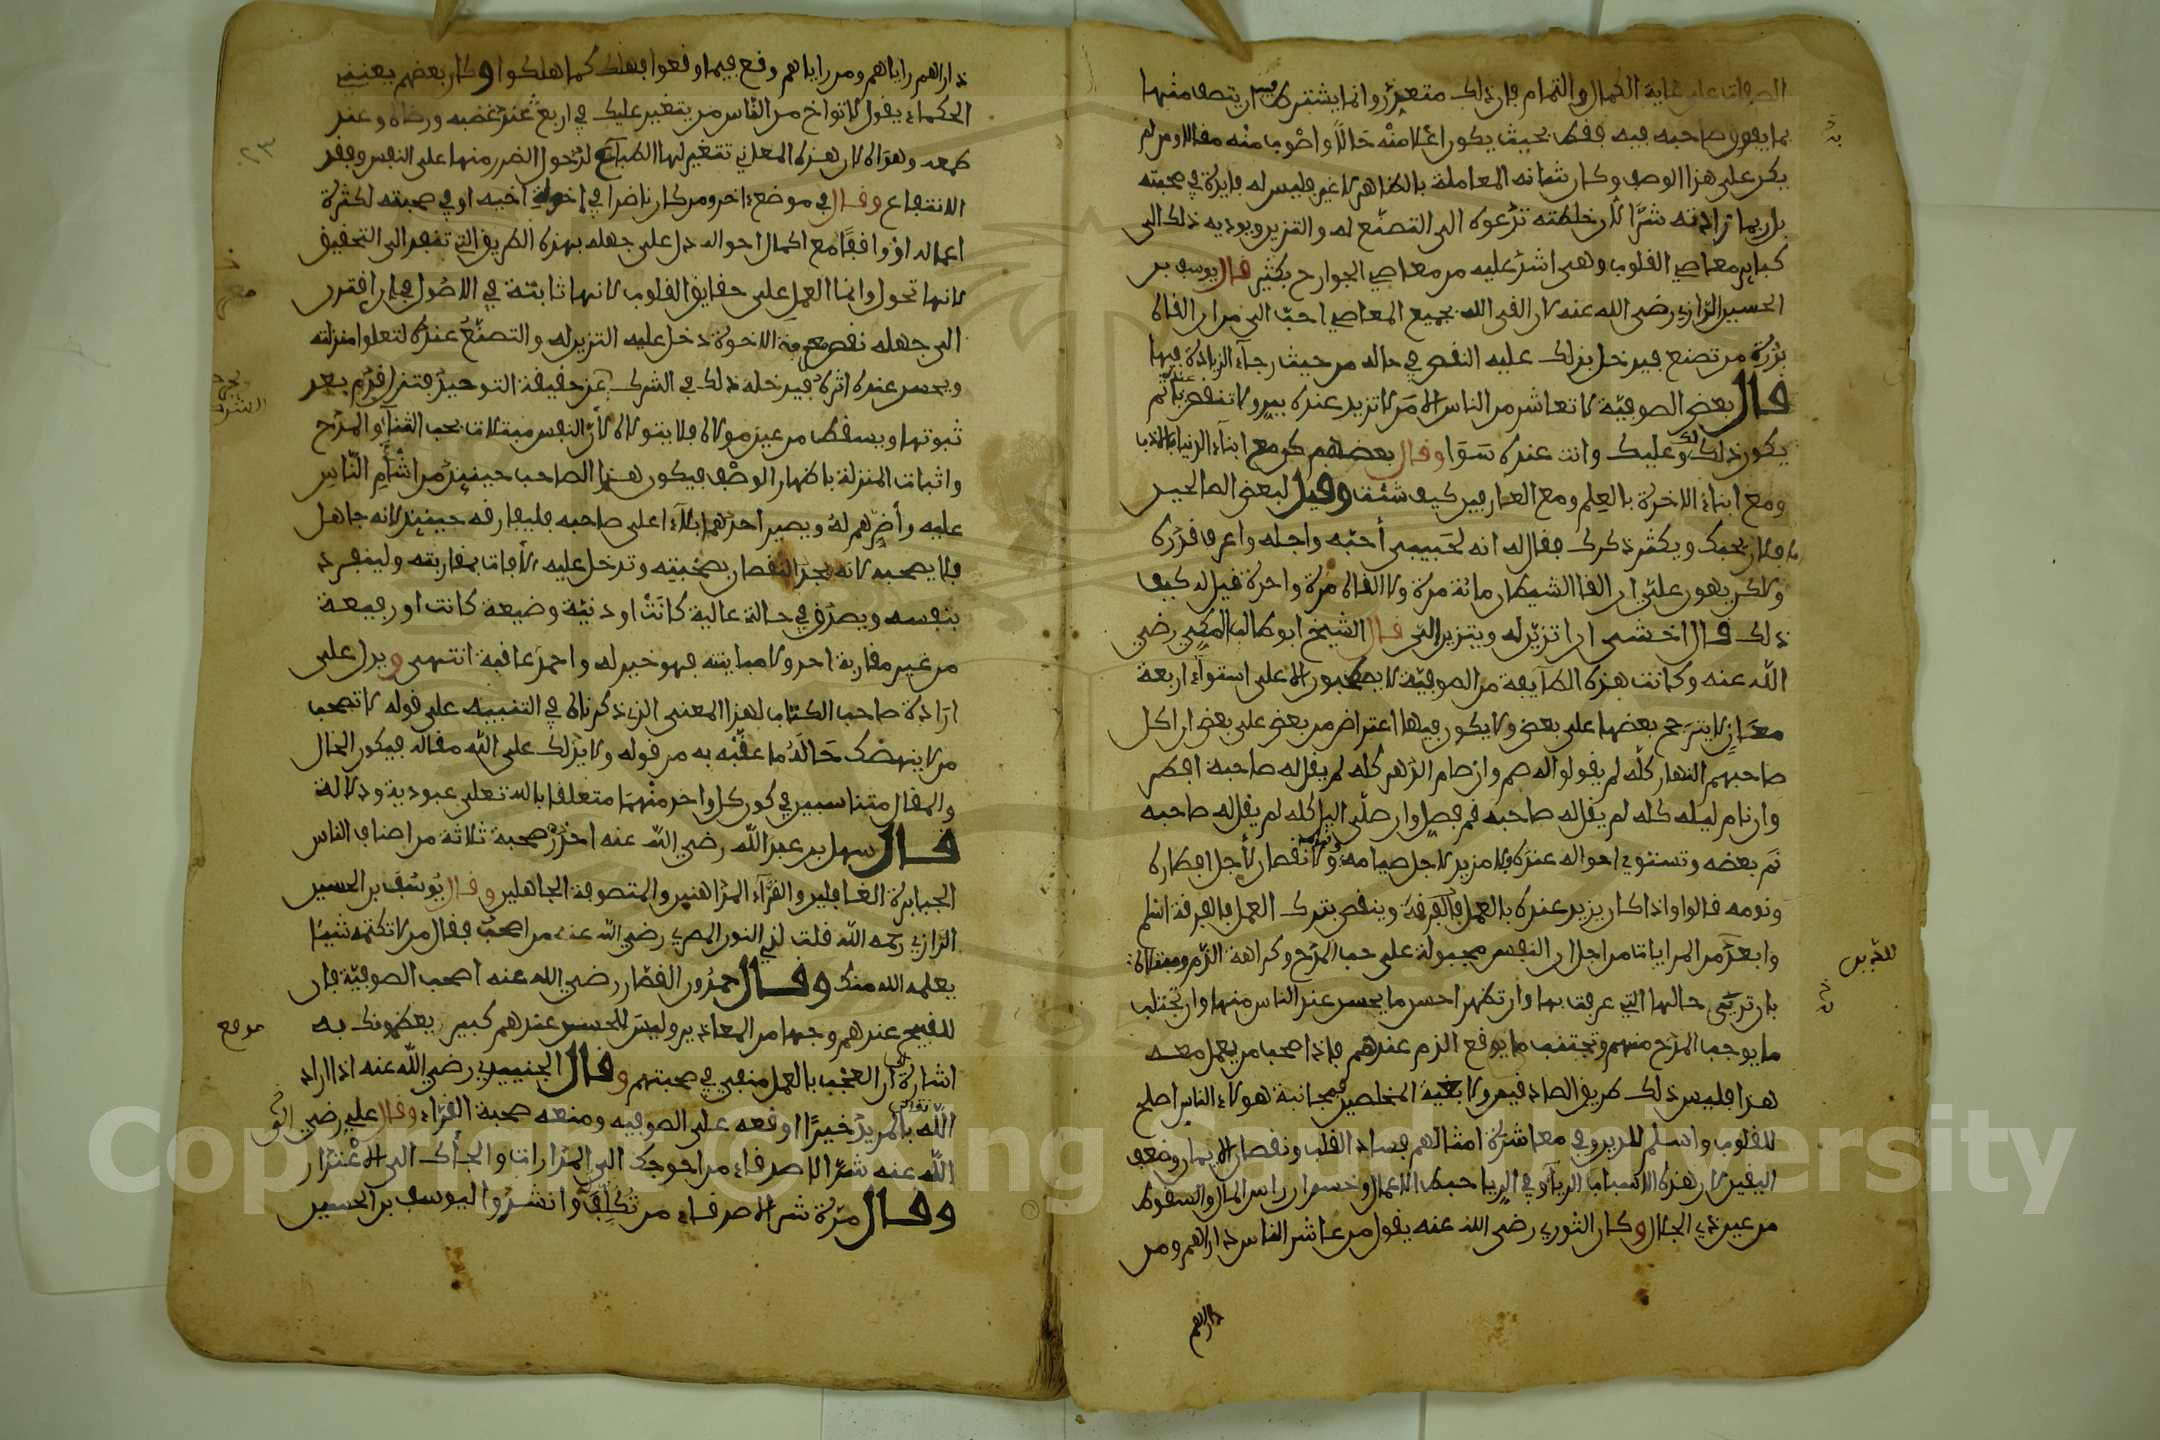 الصفات على غاية الكمال والتمام فان ذلك متعذر وانما يشترط فيه ان يتصف منها
بما يفوق صاحبه فيه فقط بحيث يكون اعلا منه حالا واصوب منه مقالا ومن لم
يكن على هذا الوصف وكان شانه المعاملة بالظاهر لا غير فليس له فايدة في صحبته
بل ربما زادته شرا لان خلطته تدعوه الى التصنع له والتزين ويوديه ذلك الى
كباير معاصي القلوب وهي اشد عليه من معاصي الجوارح بكثير قال يوسف بن
الحسين الرازي رضي الله عنه لان القى الله بجميع المعاصي احب الي من ان القاه
بذرة من تصنع فيدخل بذلك عليه النقص في حاله من حيث رجاء الزيادة فيها
قال بعض الصوفية لا تعاشر من الناس الا من لا تزيد عنده ببر ولا تنقص عنده باثم
يكون ذلك لك وعليك وانت عنده سوا وقال بعضهم كن مع ابناء الدنيا بالادب
ومع ابناء الاخرة بالعلم ومع العارفين كيف شئت وقيل لبعض الصالحين
ما فلان يحبك ويكثر ذكرك فقال له انه لحبيبي أحبه واجله واعرف قدره
ولكن يهون علي ان القا الشيطان مائة مرة ولا القاه مرة واحدة قيل له كيف
ذلك قال اخشى ان اتزين له ويتزين الي قال الشيخ ابو طالب المكي رضي
الله عنه وكانت هذه الطايفة من الصوفية لا يصطحبون الا على استواء اربعة
معان لا يترجح بعضها على بعض ولا يكون فيها اعتراض من بعض على بعض ان اكل
صاحبهم النهار كله لم يقولوا له صم وان صام الدهر كله لم يقل له صاحبه افطر
وان نام ليله كله لم يقل له صاحبه قم فصل وان صلى الليل كله لم يقل له صاحبه
نم بعضه وتستوي احواله عنده ولا مزيد لاجل صيامه وقيامه ولا نقصان لأجل افطاره
ونومه قالوا واذا كان يزيد عنده بالعمل فالفرقة وينقص بترك العمل فالفرقة اسلم
وابعد من المرايات من اجل ان النفس مجبولة على حب المدح وكراهة الذم ومبتلاة
بان ترءى حالها التي عرفت بها وان تظهر احسن ما يحسن عند الناس منها وان تجتلب
ما يوجب المدح منهم وتجتنب ما يوقع الذم عندهم فاذا صحب من يعمل معه
هذا فليس ذلك طريق الصادقين ولا بغية المخلصين فمجانبة هولاء الناس اصلح
للقلوب واسلم للدين وفي معاشرة امثالهم فساد القلب ونقصان الايمان وضعف
اليقين لان هذه الاسباب الرياء وفي الرياء حبط الاعمال وخسران راس المال والسقوط
من عين ذي الجلال وكان الثوري رضي الله عنه يقول من عاشر الناس داراهم ومن
داراهم
داراهم راياهم ومن راياهم وقع فيما وقعوا فهلك كما هلكوا وكان بعضهم يعنيني
الحكماء يقول لا تواخ من الناس من يتغير عليك في اربع عند غضبه ورضاه وعند
طمعه وهواه لان هذه المعاني تتغير لها الطبائع لدخول الضرر منها على النفس وفقد
الانتفاع وقال في موضع اخر ومن كان ناضرا في اخوة اخيه او في صحبته لكثرة
اعماله او وافقا مع اكمال احواله دل على جهله بهذه الطريق التي تنفد الى التحقيق
لانها تحول وانما العمل على حقايق القلوب لانها ثابتة في الاصول فان اقترن
الى جهله نقص معرفة الاخوة دخل عليه التزين له والتصنع عنده لتعلوا منزلته
ويحسن عنده اثره فيدخله ذلك في الشرك عن حقيقة التوحيد فتزل قدم بعد
ثبوتها ويسقط من عين مولاه فلا يتولاه لأن النفس مبتلات بحب الثناء والمدح
واثبات المنزلة باظهار الوصف فيكون هذا الصاحب حينئذ من اشأم الناس
عليه وأضرهم له ويصير احدهما بلاء على صاحبه فليفارقه حينئذ لانه جاهل
فلا يصحبه لانه يجد النقصان بصحبته وتدخل عليه الأفات بمقاربته ولينفرد
بنفسه ويصدق في حالة عالية كانت او دنية وضيعة كانت او رفيعة
من غير مقاربة احد ولا مباينته فهو خير له واحمد عاقبة انتهى ويدل على
ارادة صاحب الكتاب لهذا المعنى الذي ذكرناه في التنبيه على قوله لا تصحب
من لا ينهضك حاله ما عقبه به من قوله ولا يدلك على الله مقاله فيكون الحال
والمقال متناسبين في كون كل واحد منهما متعلقا بالله تعلى عبودية ودلالة
قال سهل بن عبد الله رضي الله عنه احذر صحبة ثلاثة من اصناف الناس
الجبابرة الغافلين والقراء المداهنين والمتصوفة الجاهلين وقال يوسف بن الحسين
الرازي رحمه الله قلت لذي النون المصري رضي الله عنه من اصحب فقال من لا تكتمه شيئا
يعلمه الله منك وقال حمدون القصار رضي الله عنه اصحب الصوفية فان
للقبيح عندهم وجها من المعاذير وليس للحسن عندهم كبير يعظمونك به
اشارة الى ان العجب بالعمل منفي في صحبتهم وقال الجنيد رضي الله عنه اذا اراد
الله تعالى بالمريد خيرا اوقعه على الصوفيه ومنعه صحبة القراء وقال علي رضي
الله عنه شر الاصدقاء من احوجك الى المدارات والجأك الى الاعتذار
وقال مرة شر الاصدقاء من تكلف وانشدوا ليوسف بن الحسين
موقع